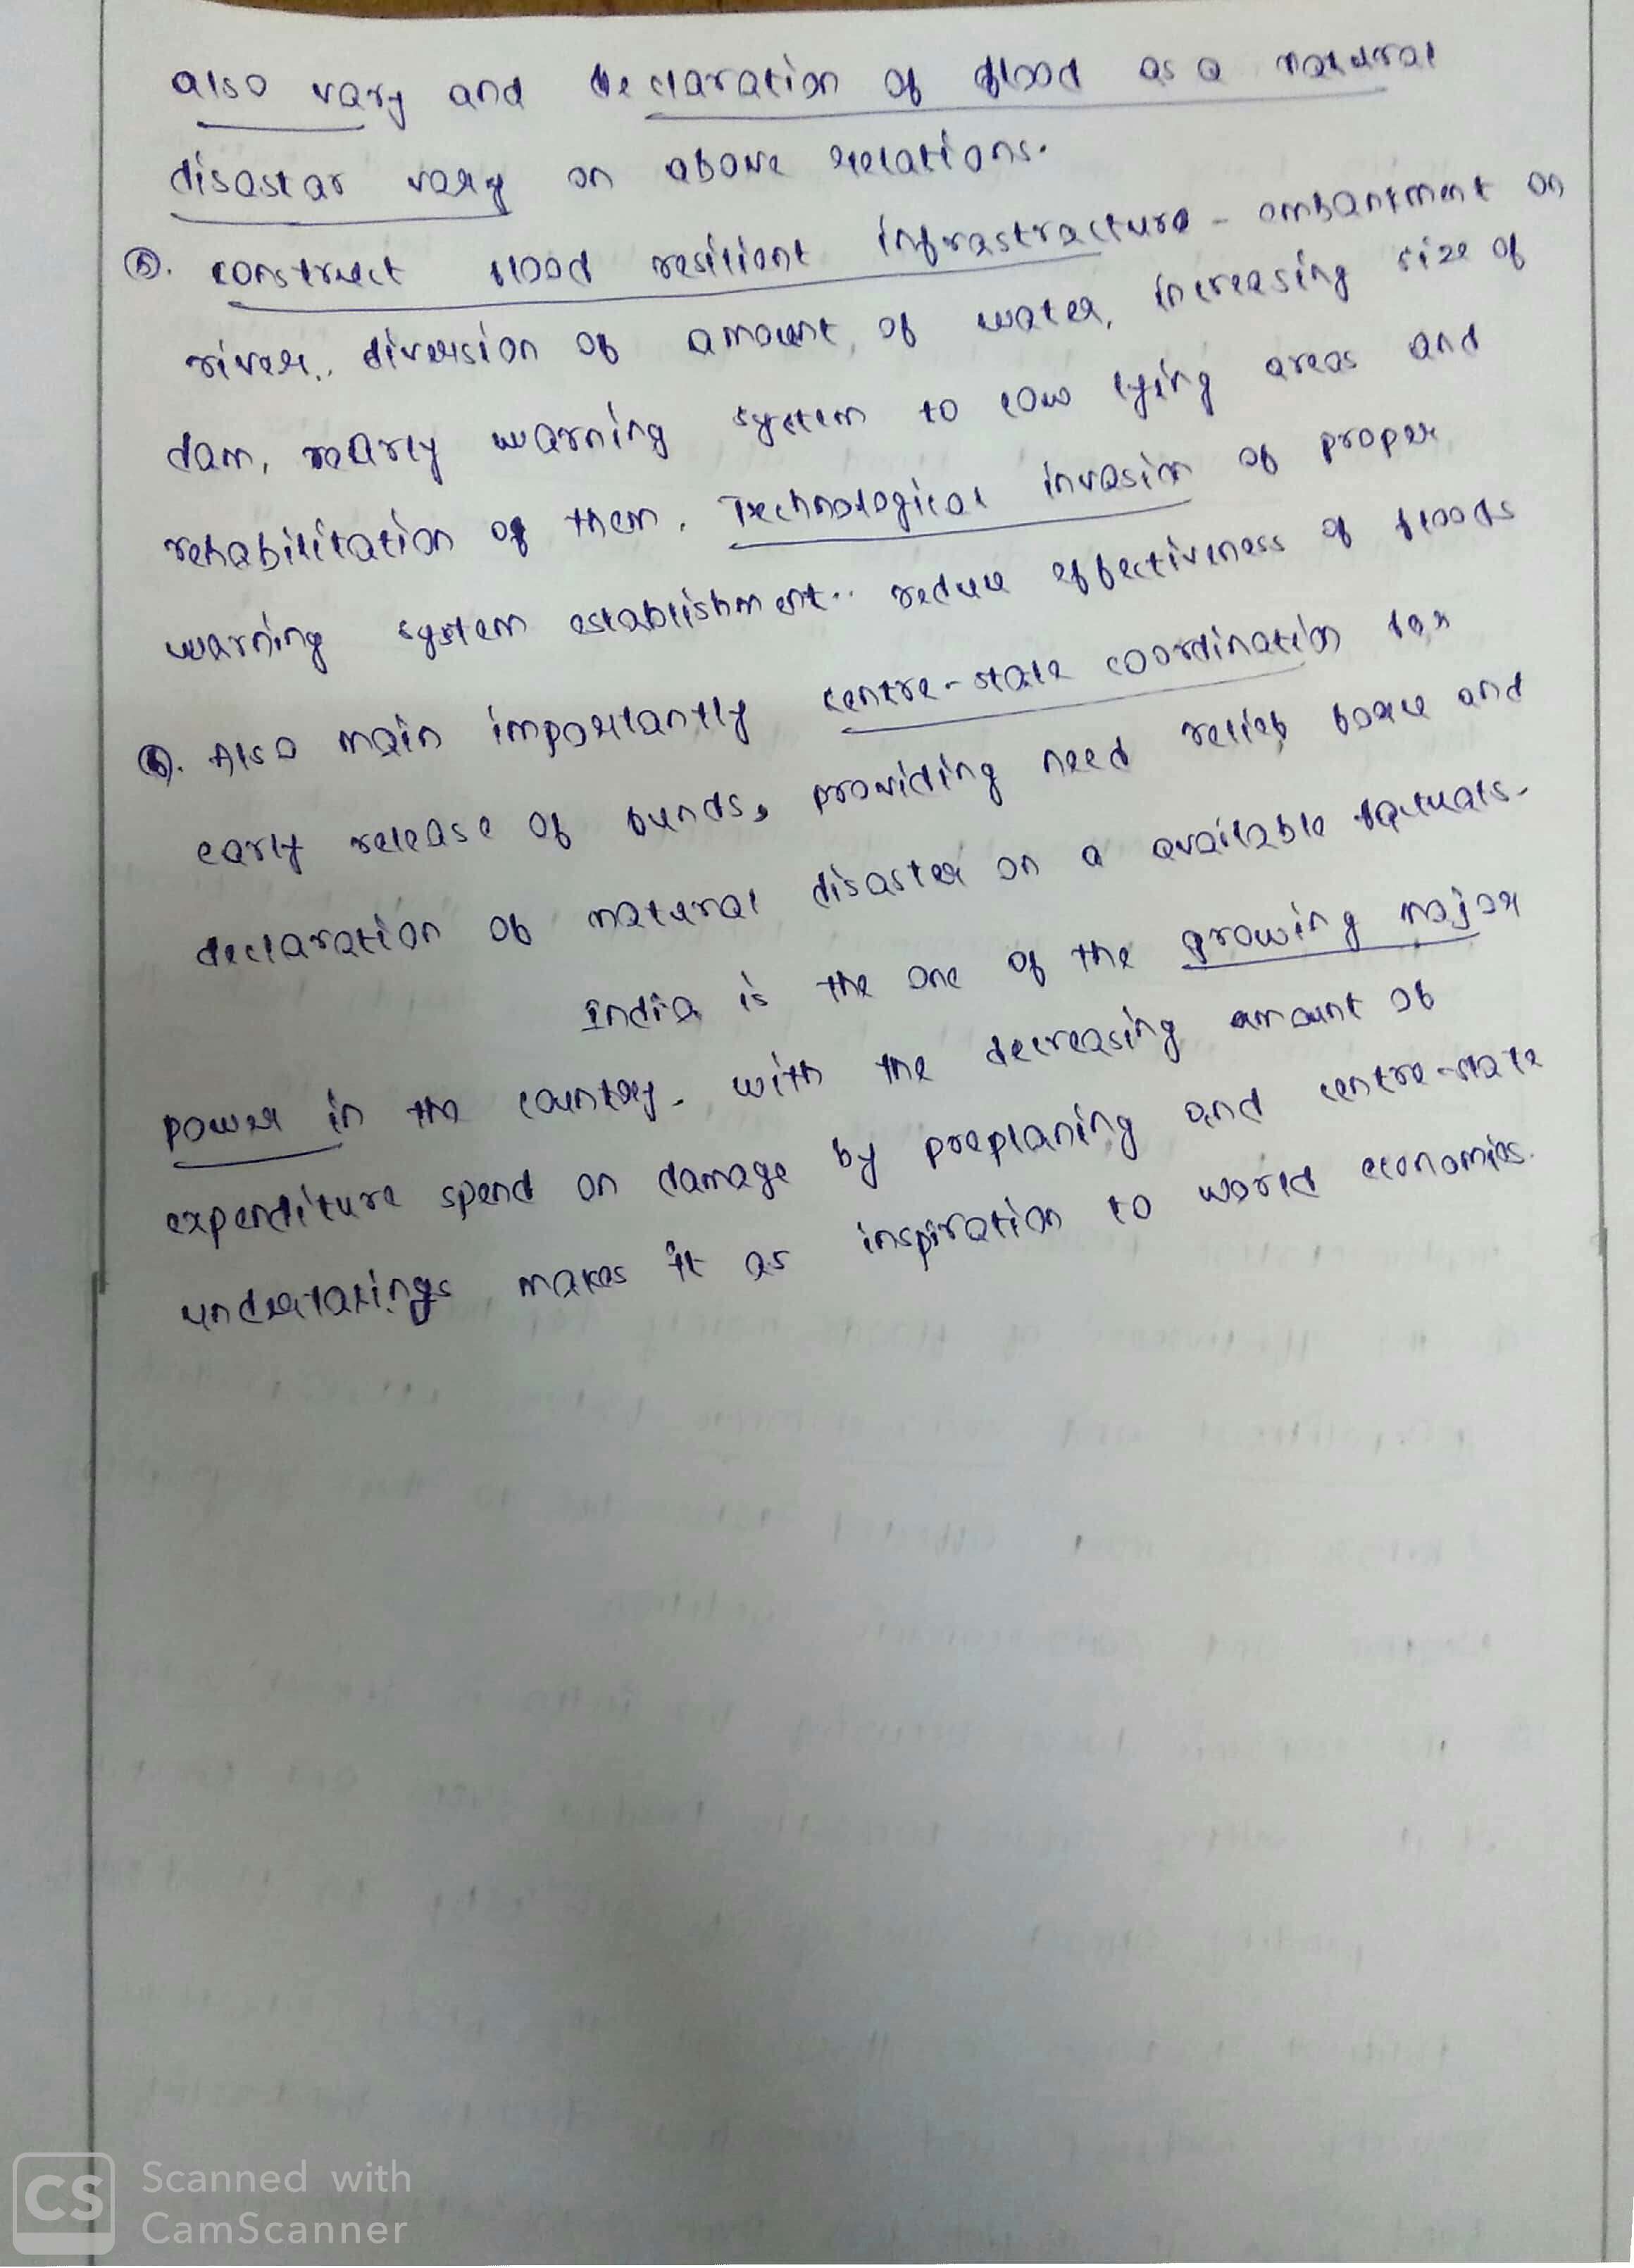 also vary and declaration of flood as a natural
disastar vary on above relations.
⑤. construct flood resilient infrastracture - embankment on
river., diversion of amount, of water, increasing size of
dam, early warning system to low lying areas and
rehabilitation of them. Technological invasion of proper
warning system establishment.. reduce effectiveness of floods
⑥. Also main importantly centre-state coordination for
early release of funds, providing need relief force and
declaration of natural disaster on a available factuals.
India is the one of the growing major
power in the country. with the decreasing amount of
expenditure spend on damage by preplaning and centre-state
undertakings makes it as inspiration to world economies.
CS Scanned with
CamScanner